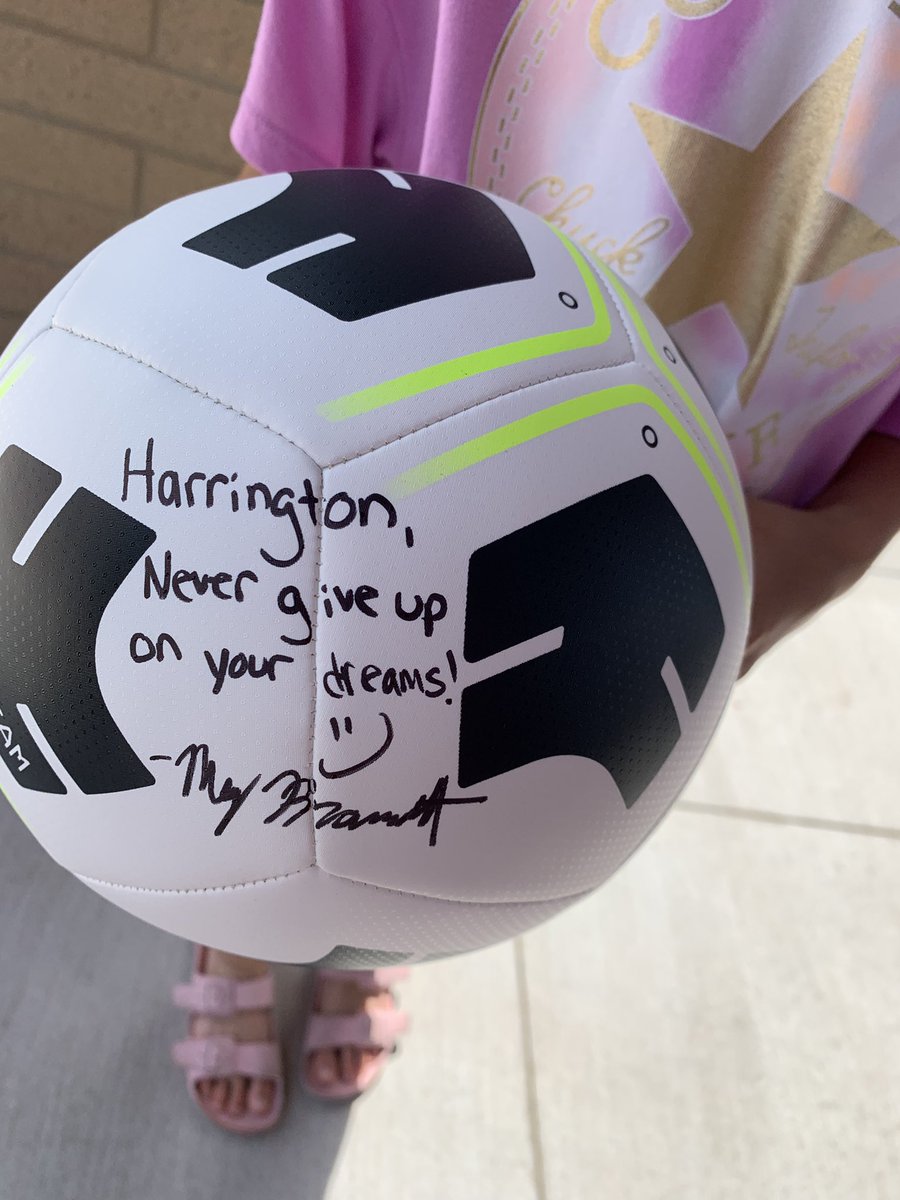 Harrington,
Never give up
on your dreams!
Chuck